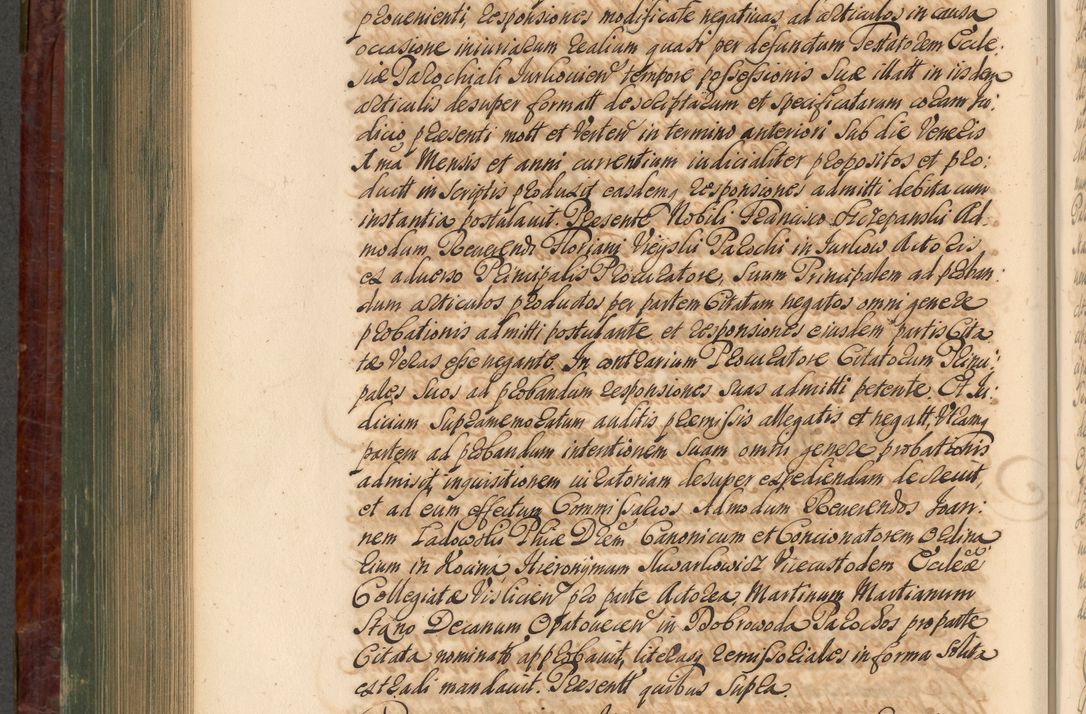 provenienti, responsiones modificate negativas ad articulos in causa
occasione iniuriarum realium quasi per defunctum Testatorem Eccle:
siæ Parochiali Jurkovien tempore possessionis suæ illatt in iisdem
articulis desuper formatt descriptarum et specificatarum coram Ju:
dicio præsenti mott et verten in termino anteriori sub die Veneris
Mensis et anni currentium iudicialiter propositos et pro:
ductt in scriptis produxit easdemq responsiones admitti debita cum
instantia postulavit. Præsente Nobili Francisco Szczepanski Ad:
modum Reverendi Floriani Parochi in Jurkow Actoris
ex adverso Principalis Procuratore, suum Principalem ad proban:
dum articulos productos per partem Citatam negatos omni genere
probationis admitti postulante et responsiones eiusdem partis Cita
tæ veras esse negante. In contrarium Procuratore Citatorum Princi:
pales suos ad probandum responsiones suas admitti petente. Et Ju:
dicium supramemoratum auditis præmissis allegatis et negatt, utramq
partem ad probandum intentionem suam omni genere probationis
admisit inquisitionem iuratoriam desuper expediendam decrevit,
et ad eum effectum Commissarios Admodum Reverendos Joan:
nem Ladowski Phiæ Drem Canonicum et Concionatorem ordina
rium in Hieronymum Vicecustodem Eccleæ
Collegiatæ Vislicien pro parte Actorea, Martinum Martianum
Decanum Opatovecen in Dobrowoda Parochos pro parte
Citata nominatt approbavit, literasq remissoriales in forma solita
extradi mandavit. Præsentt quibus supra.